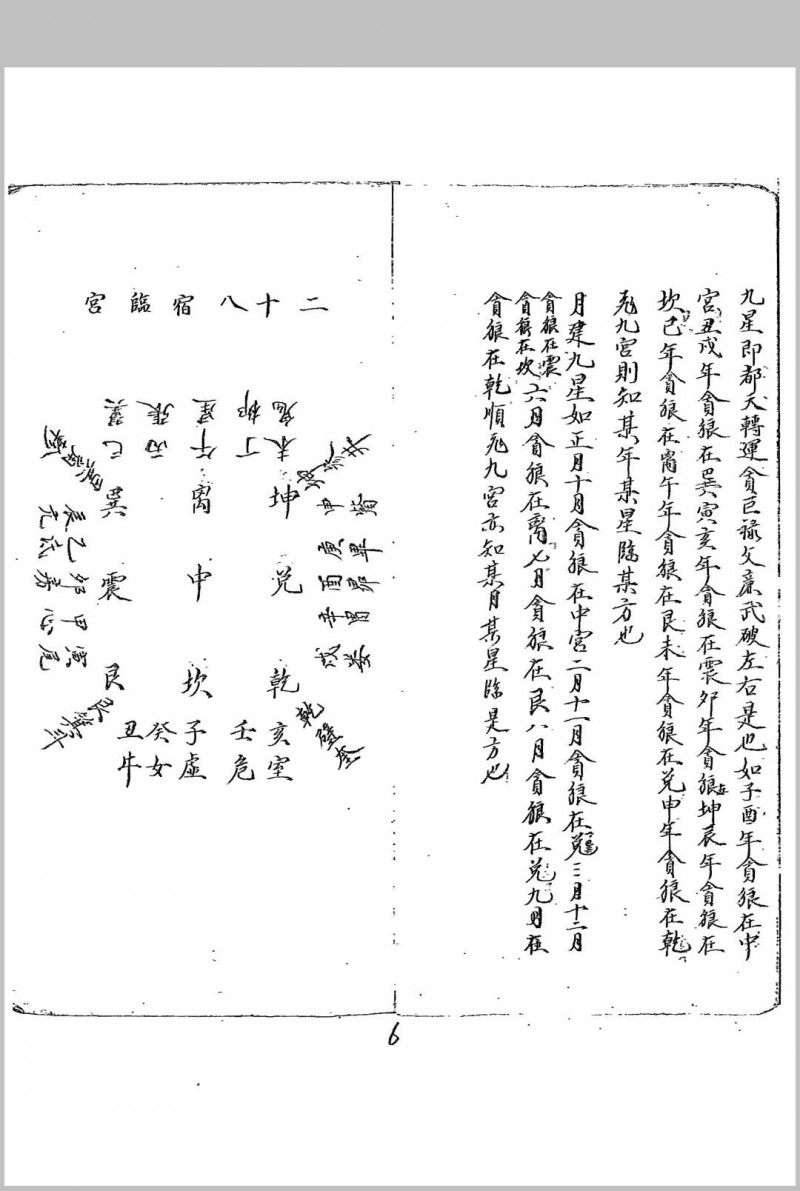 九星即都天轉運貪巨祿文廉武破左右是也如子酉年貪狼在中
宮丑戌年貪狼在巽寅亥年貪狼在震夘年貪狼在坤辰年貪狼在
坎巳年貪狼在离午年貪狼在艮未年貪狼在兌申年貪狼在乾
九宮則知某年某星臨某方也
月建九星如正月十月貪狼在中宮二月十一月貪狼在三月十二月
貪狼在震
貪狼在坎
六月貪狼在离七月貪狼在艮八月貪狼在兌九月在
貪狼在乾順九宮亦知某月某星臨是方也
二十八宿臨宮
翼張星柳鬼
巳丙午丁未
巽离坤
震中兌
艮坎乾
申庚酉辛戌
觜畢昴胃婁
辰乙夘甲寅
亢氐房心尾
艮箕斗
丑癸子壬亥
牛女虛危室
乾壁奎
6